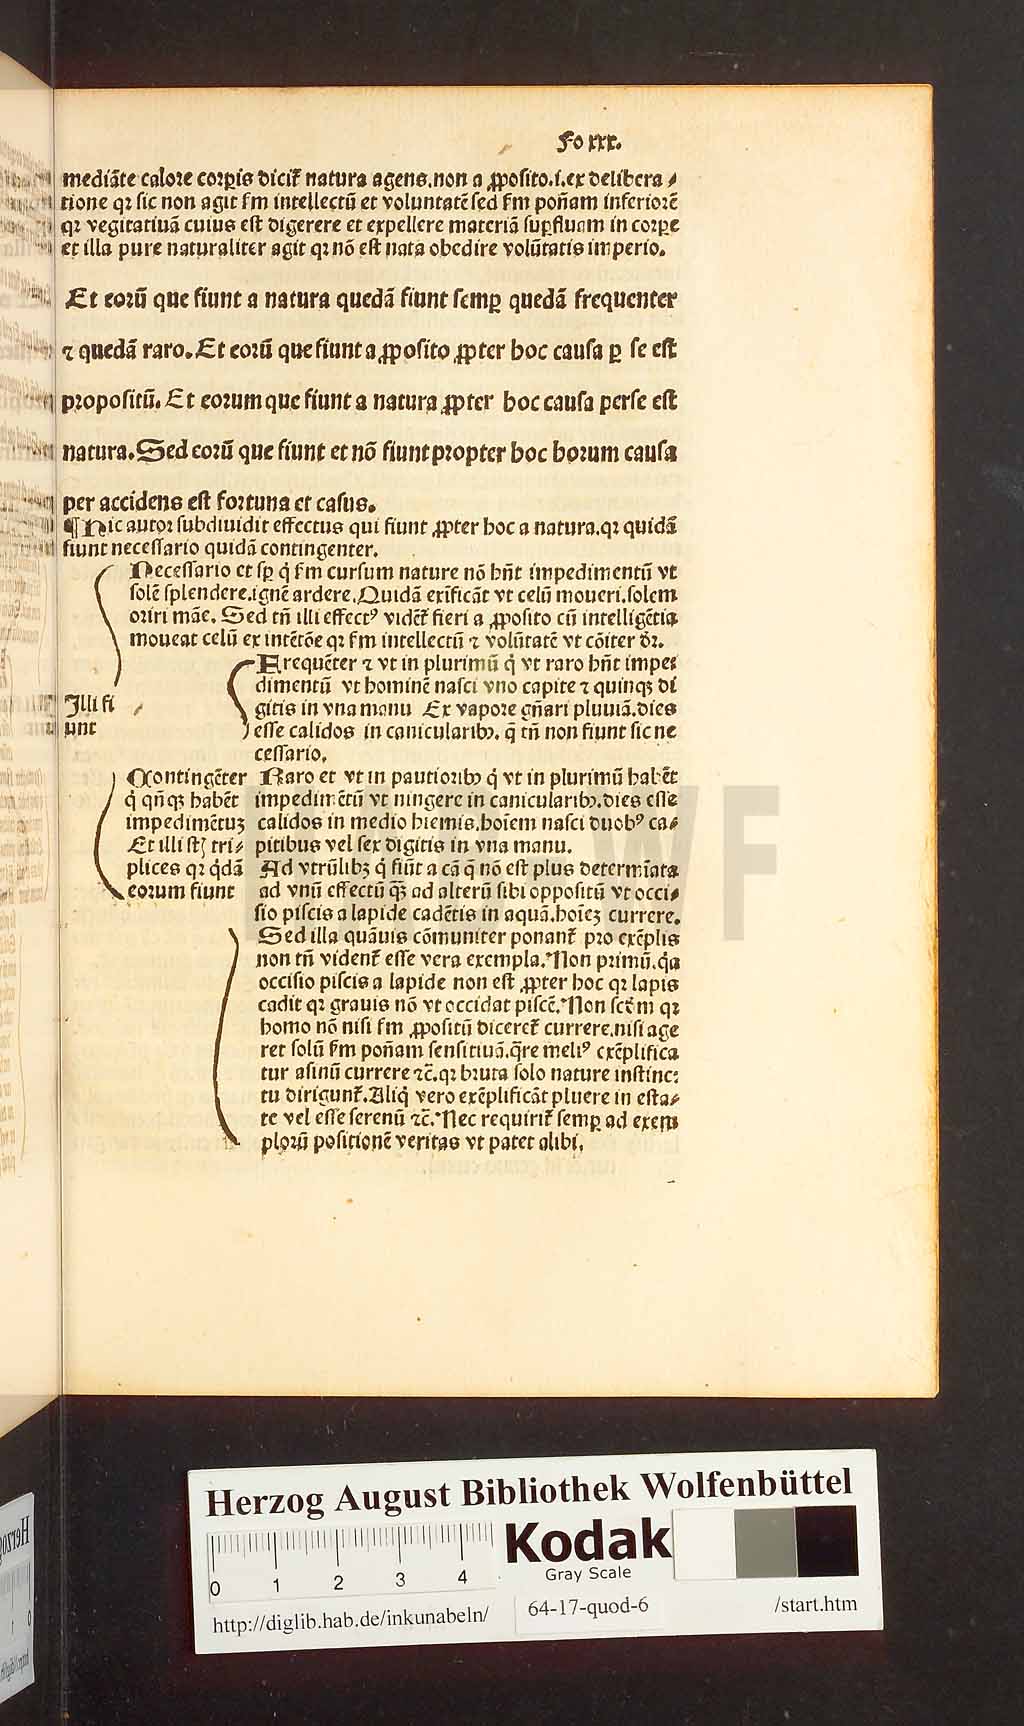 Fo xxx.
mediāte calore corꝑis diciť natura agens.non a ꝓposito.i.ex delibera⸗
tione qꝛ sic non agit ẜm intellectū et voluntatē sed ẜm poñam inferiorē
qꝛ vegitatiuā cuius est digerere et expellere materiā suꝑfluam in corꝑe
et illa pure naturaliter agit qꝛ nō est nata obedire volūtatis imperio.
Et eorū que fiunt a natura quedā fiunt semꝑ quedā frequenter
⁊ quedā raro. Et eorū que fiunt a ꝓposito ꝓpter hoc causa ꝑ se est
propositū. Et eorum que fiunt a natura ꝓpter hoc causa per se est
natura. Sed eorū que fiunt et nō fiunt propter hoc horum causa
per accidens est fortuna et casus.
¶ Hic autor subdiuidit effectus qui fiunt ꝓpter hoc a natura.qꝛ quidā
fiunt necessario quidā contingenter.
Necessario et sꝑ q̇ ẜm cursum nature nō hñt impedimentū vt
solē splendere.ignē ardere. Quidā exīficāt vt celū moueri.solem
oriri māe. Sed tñ illi effectꝰ videť fieri a ꝓposito cū intelligētia
moueat celū ex intētōe qꝛ ẜm intellectū ⁊ volūtatē vt cōiter dꝛ.
Frequēter ⁊ vt in plurimū q̇ vt raro hñt impe⸗
dimentū vt hominē nasci vno capite ⁊ quinqꝫ di
Illi fi
gitis in vna manu Ex vapore gñari pluuiā.dies
unt
esse calidos in canicularibꝰ. q̇ tñ non fiunt sic ne
cessario.
Contingēter
q̇ qñqꝫ habēt
impedimētuꝫ
Et illi stꝫ tri⸗
plices qꝛ q̇dā
eorum fiunt
Raro et vt in pautioribꝰ q̇ vt in plurimū habēt
impedimētū vt ningere in canicularibꝰ.dies esse
calidos in medio hiemis.hoīem nasci duobꝰ ca⸗
pitibus vel sex digitis in vna manu.
Ad vtrūlibꝫ q̇ fiūt a cā q̄ nō est plus determīata
ad vnū effectū q̄ꝫ ad alterū sibi oppositū vt occi⸗
sio piscis a lapide cadētis in aquā.hoīeꝫ currere.
Sed illa quāuis cōmuniter ponanť pro exēplis
non tñ videnť esse vera exempla. Non primū.q̇a
occisio piscis a lapide non est ꝓpter hoc qꝛ lapis
cadit qꝛ grauis nō vt occidat piscē. Non scd̄m qꝛ
homo nō nisi ẜm ꝓpositū dicereť currere.nisi age
ret solū ẜm poñam sensitiuā.q̄re meliꝰ exēplifica
tur asinū currere ⁊c̄.qꝛ bruta solo nature instinc⸗
tu dirigunť. Aliq̇ vero exēplificāt pluere in esta⸗
te vel esse serenū ⁊c̄. Nec requiriť semꝑ ad exem
plorū positionē veritas vt patet alibi.
HAB WF
Herzog August Bibliothek Wolfenbüttel
0 1 2 3 4
Kodak
Gray Scale
http://diglib.hab.de/inkunabeln/
64-17-quod-6
/start.htm